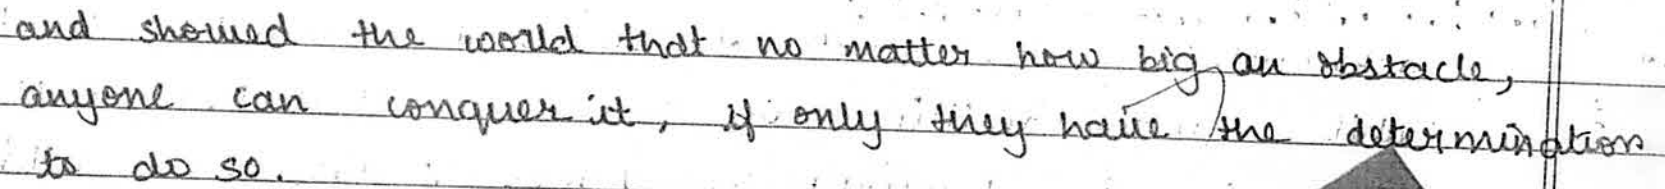 and showed the world that no matter how big an obstacle,
anyone can conquer it, if only they have the determination
to do so.